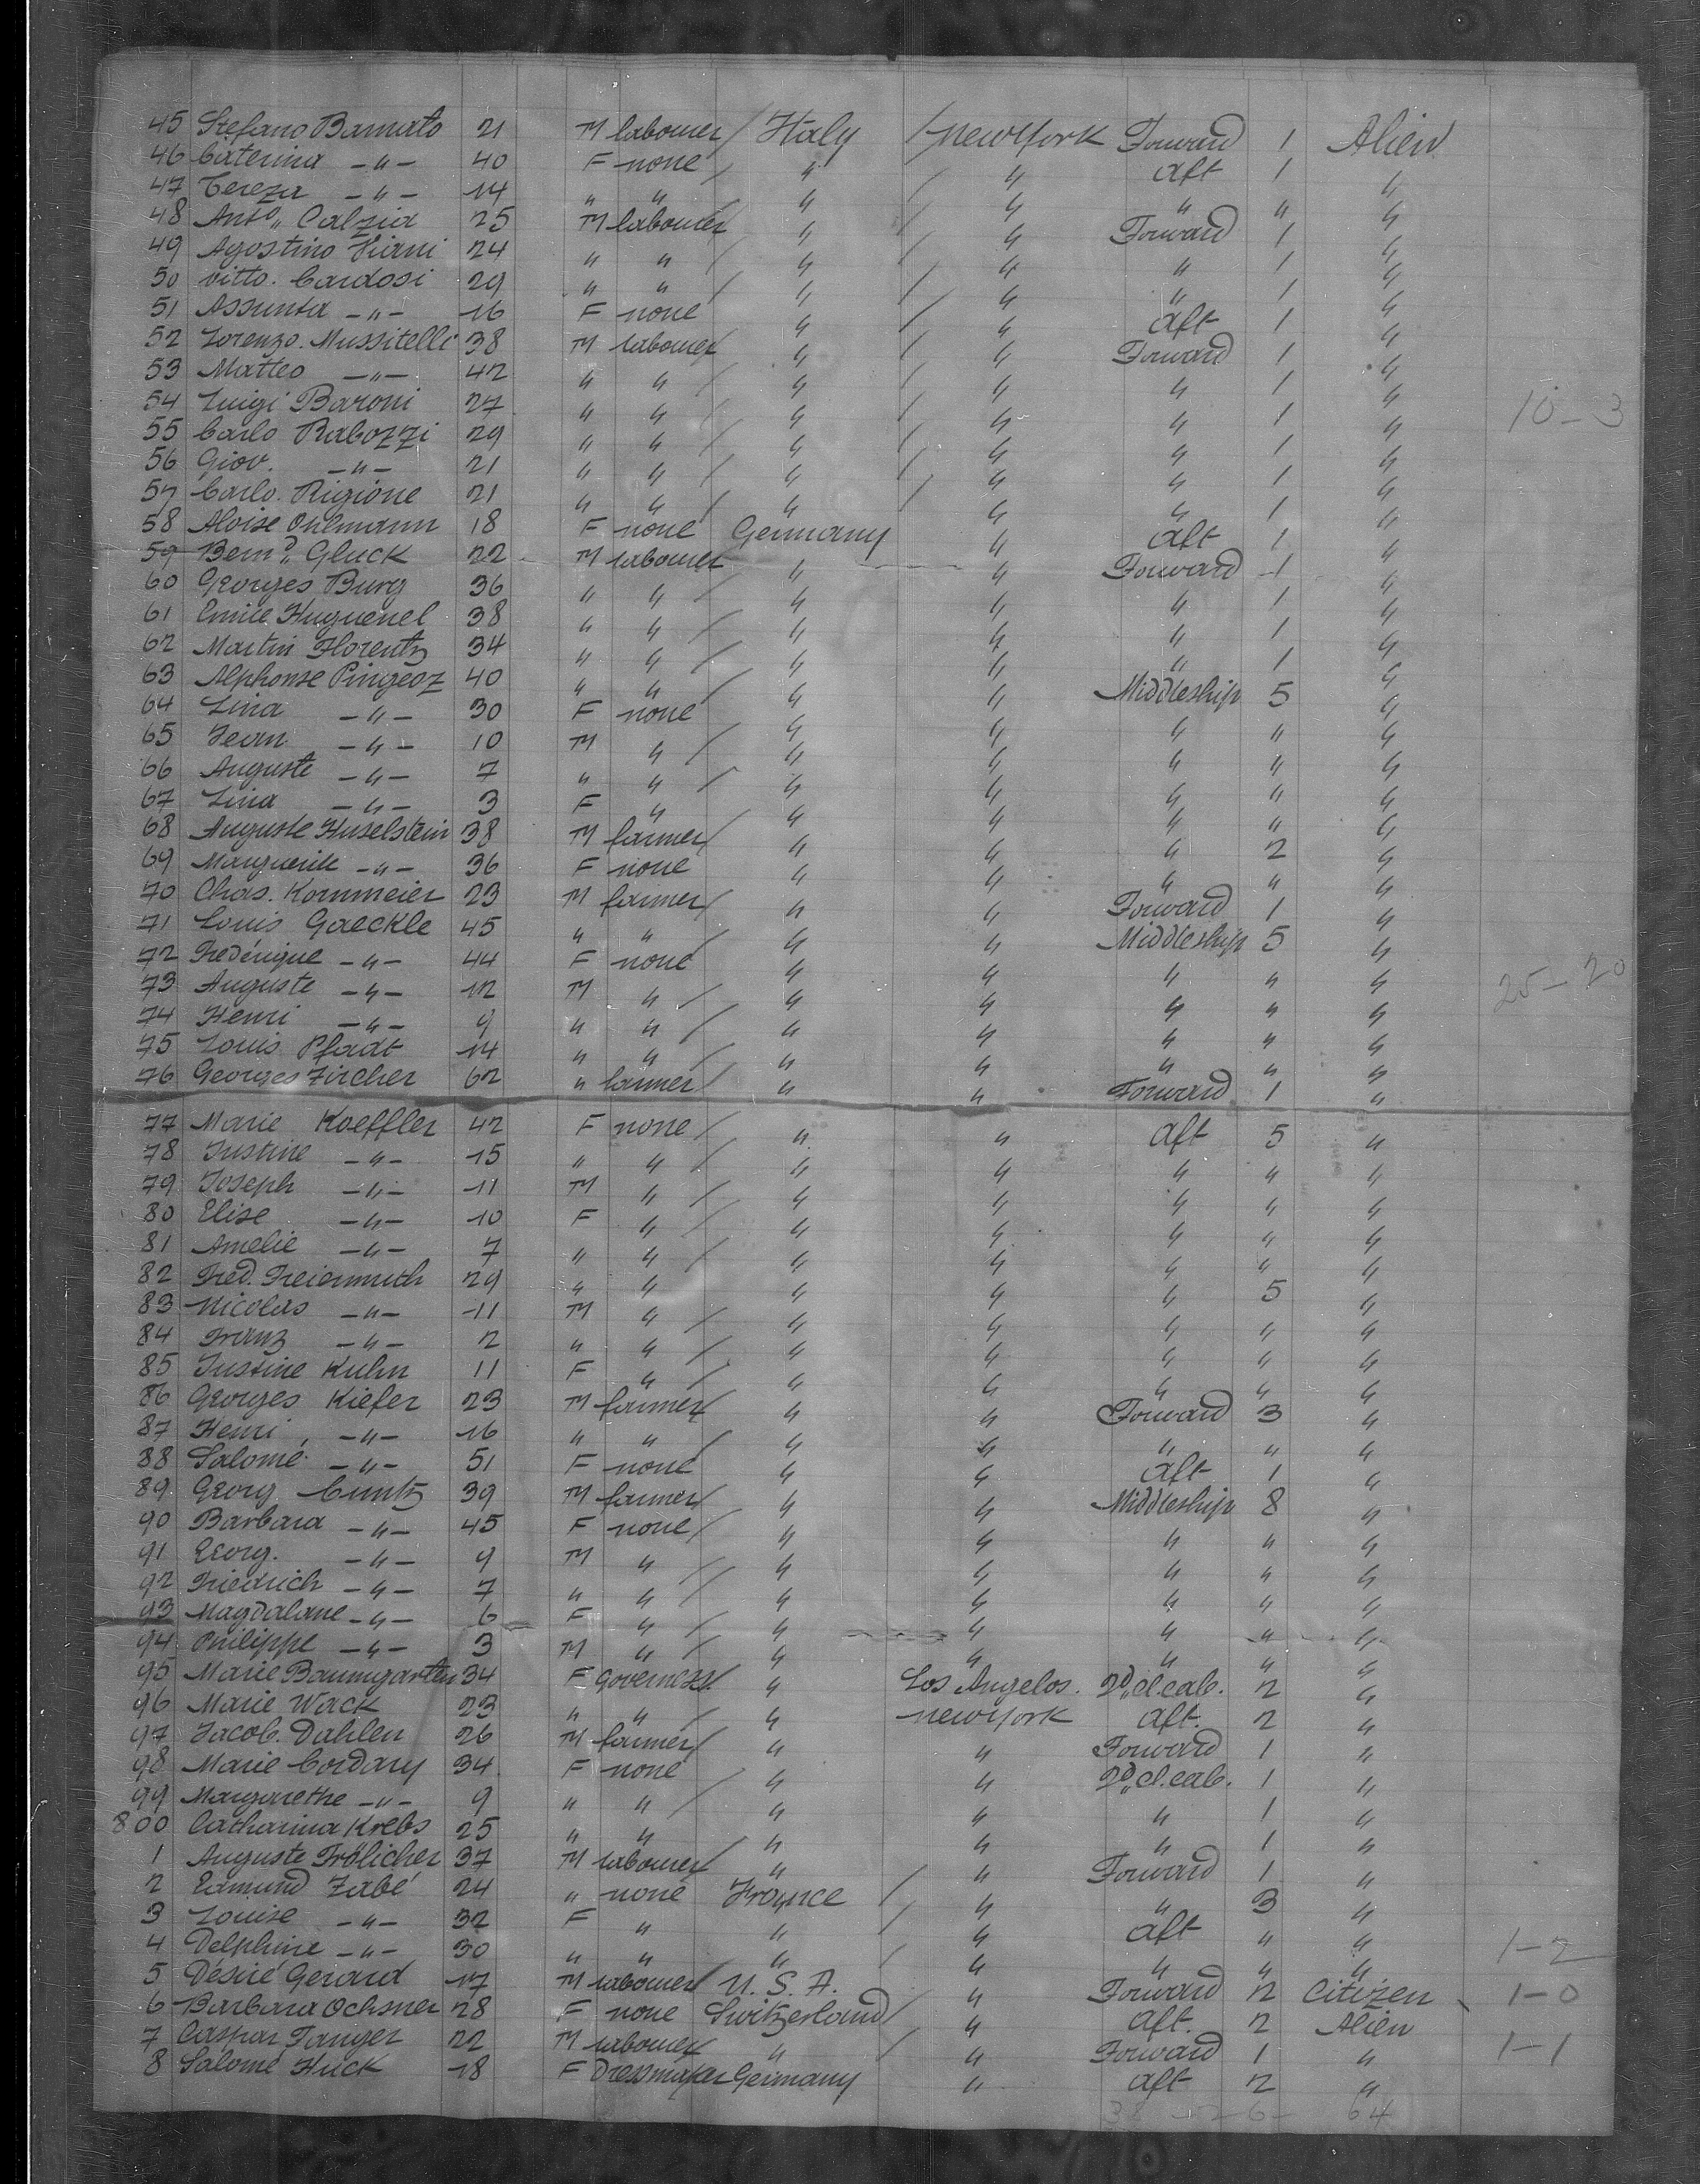 45 Stefano Barnato 21 M labourer / Italy / New York Forward 1 Alien
46 Caterina -"- 40 F none / " / " aft 1 "
47 Tereza -"- 14 " " / " / " " " "
48 Anto. Calzia 25 M labourer " / " Forward 1 "
49 Agostino Viani 24 " " / " / " " 1 "
50 Vitto. Cardosi 29 " " / " / " " 1 "
51 Assunta -"- 16 F none " / " aft 1 "
52 Lorenzo. Mussitelli 38 M labourer " / " Forward 1 "
53 Matteo -"- 42 " " / " / " " 1 "
54 Luigi Baroni 27 " " / " / " " 1 " 10-3
55 Carlo Rabozzi 29 " " / " / " " 1 "
56 Giov. -"- 21 " " / " / " " 1 "
57 Carlo. Rigione 21 " " / " / " " 1 "
58 Aloise Ohlmann 18 F none Germany " aft 1 "
59 Bernd. Gluck 22 M labourer " " Forward 1 "
60 Georges Burg 36 " " / " " " 1 "
61 Emile Huguenel 38 " " / " " " 1 "
62 Martin Florentz 34 " " / " " " 1 "
63 Alphonse Pingeoz 40 " " / " " Middleship 5 "
64 Lina -"- 30 F none " " " " "
65 Jean -"- 10 M " / " " " " "
66 Auguste -"- 7 " " / " " " " "
67 Lina -"- 3 F " " " " " "
68 Auguste Huselstein 38 M farmer / " " " 2 "
69 Marguerite -"- 36 F none " " " " "
70 Chas. Kornmeier 23 M farmer / " " Forward 1 "
71 Louis Gaeckle 45 " " / " " Middleship 5 "
72 Fredérique -"- 44 F none " " " " "
73 Auguste -"- 12 M " / " " " " " 25-20
74 Henri -"- 9 " " / " " " " "
75 Louis Pfadt 14 " " / " " " " "
76 Georges Zircher 62 " farmer / " " Forward 1 "
77 Marie Koeffler 42 F none / " " aft 5 "
78 Justine -"- 15 " " / " " " " "
79 Joseph -"- 11 M " / " " " " "
80 Elise -"- 10 F " / " " " " "
81 Amelie -"- 7 " " / " " " " "
82 Fred. Freiermuth 29 " " " " " 5 "
83 Nicolas -"- 11 M " / " " " " "
84 Franz -"- 2 " " / " " " " "
85 Justine Kuhn 11 F " / " " " " "
86 Georges Kiefer 23 M farmer / " " Forward 3 "
87 Henri, -"- 16 " " / " " " " "
88 Salomé -"- 51 F none " " aft 1 "
89 Georg Cuntz 39 M farmer / " " Middleship 8 "
90 Barbara -"- 45 F none / " " " " "
91 Georg. -"- 9 M " / " " " " "
92 Friedrich -"- 7 " " / " " " " "
93 Magdalane -"- 6 F " / " " " " "
94 Philippe -"- 3 M " / " " " " "
95 Marie Baumgarten 34 F Governess / " Los Angelos. 2d. cl. cab. 2 "
96 Marie Wack 23 " " / " New York aft. 2 "
97 Jacob. Dahlen 26 M farmer / " " Forward 1 "
98 Marie Cordary 34 F none " " 2d. cl. cab. 1 "
99 Margarethe -"- 9 " " / " " " 1 "
800 Catharina Krebs 25 " " " " " 1 "
1 Auguste Frölicher 37 M labourer " / " Forward 1 "
2 Edmund Zabé 24 " none France / " " 3 "
3 Louise -"- 32 F " " / " aft " "
4 Delphine -"- 30 " " " / " " " " 1-2
5 Désiré Gerard 17 M labourer / U. S. A. " Forward 2 Citizen 1-0
6 Barbara Ochsner 28 F none Switzerland / " aft. 2 Alien
7 Caspar Tanger 22 M labourer " / " Forward 1 " 1-1
8 Salomé Huck 18 F Dressmaker Germany " aft 2 "
64